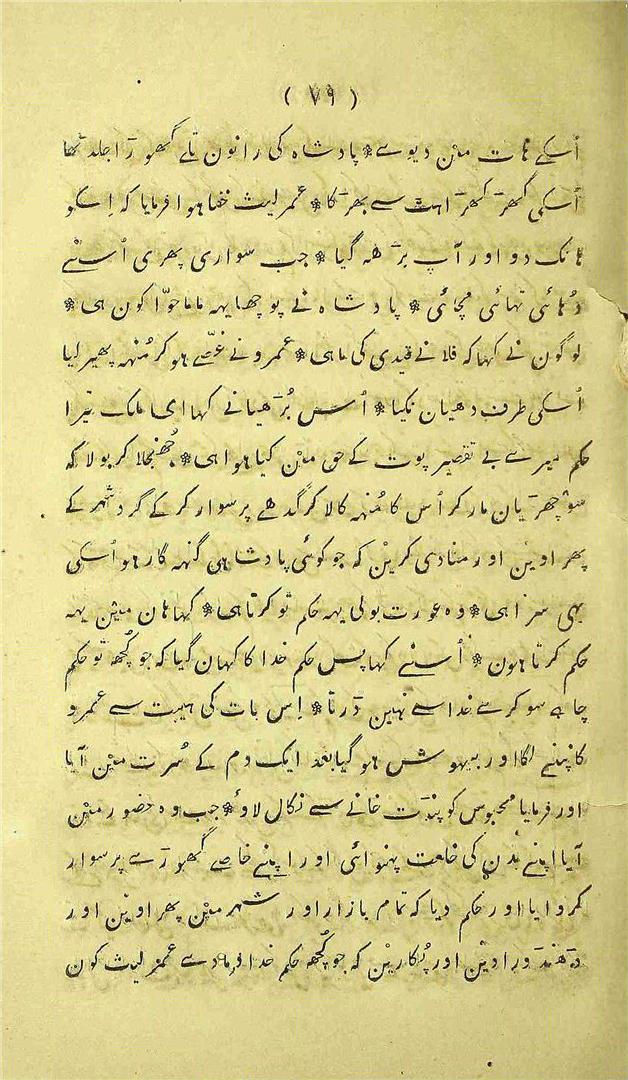 ( ۷۹ )
اُسکے ہات مین دیوے * پادشاہ کی رانون تلے گھورَا جلد تھا
اُسکی گھرَ کھرَاہت سے بھرَکا * عمر لیث خفا ہوا فرمایا کہ اِسکو
ہانک دو اور آپ برَھہ گیا * جب سواری پھری اُسنے
دُہائی تہائی مچائی * پادشاہ نے پوچھا یہہ ماما حوّا کون ہی *
لوگون نے کہا کہ فلانے قیدی کی ما ہی * عمرو نے غصّے ہوکر مُنہہ پھیر لیا
اُسکی طرف دھیان نکیا * اُس بُرَھیا نے کہا ای ملک تیرا
حکم میرے بے تقصیر پوت کے حق مین کیا ہوا ہی * جھُنجھلا کر بولا کہ
سو چھرَیان مار کر اُس کا مُنہہ کالا کر گدھے پر سوار کر کے گرد شہر کے
پھراوین اور منادی کرین کہ جو کوئی پادشاہی گنہہ گار ہو اُسکی
یہی سزا ہی * وہ عورت بولی یہہ حکم تو کرتا ہی * کہا ہان مین یہہ
حکم کرتا ہون * اُسنے کہا پس حکم خدا کا کہان گیا کہ جو کُچھہ تو حکم
چاہے سو کرے خدا سے نہین دَرتا * اِس بات کی ہیبت سے عمرو
کانپنے لگا اور بیہوش ہو گیا بعد ایک دم کے سُرت مین آیا
اور فرمایا محبوس کو پندَت خانے سے نکال لاؤ * جب وہ حضور مین
آیا اپنے بدن کی خلعت پہنوائی اور اپنے خاصے گھورَے پر سوار
کروایا اور حکم دیا کہ تمام بازار اور شہر مین پھراوین اور
دَھندَورا دین اور پُکارین کہ جو کُچھہ حکم خدا فرماوے عمر لیث کون